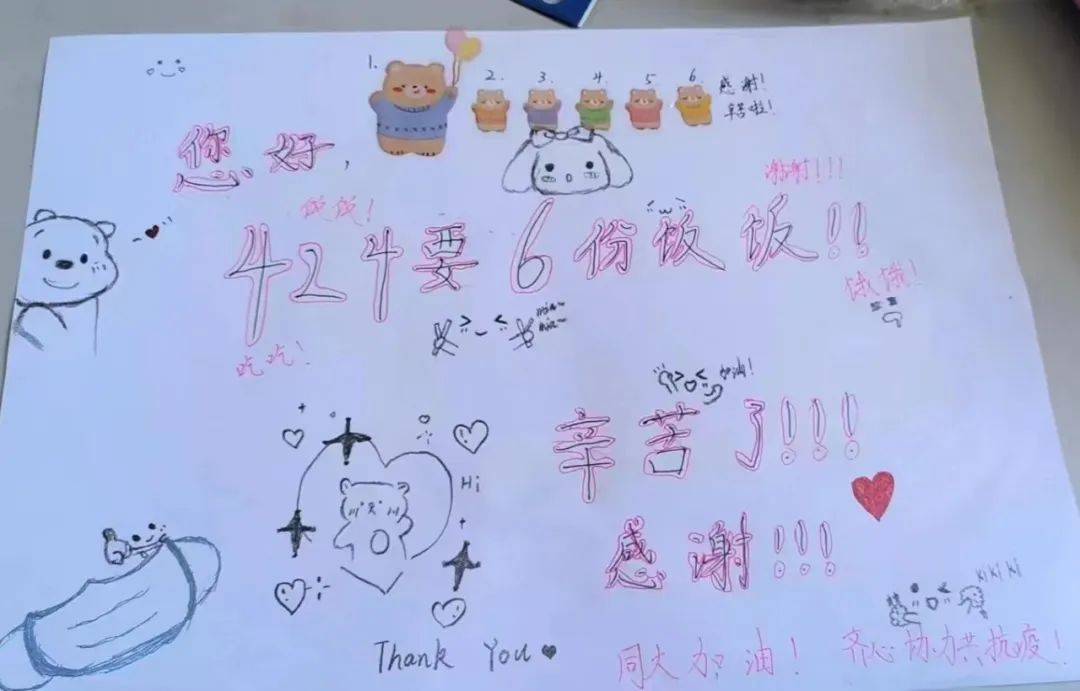 1.
2. 3. 4. 5 6.
感谢!
辛苦啦!
您好,
谢谢!!!
饭饭!
424要6份饭饭!!
饿饿!
吃吃!
加油!
辛苦了!!!
Hi
感谢!!!
Ki Ki Ki
Thank You
同火加油! 齐心协力共抗疫!